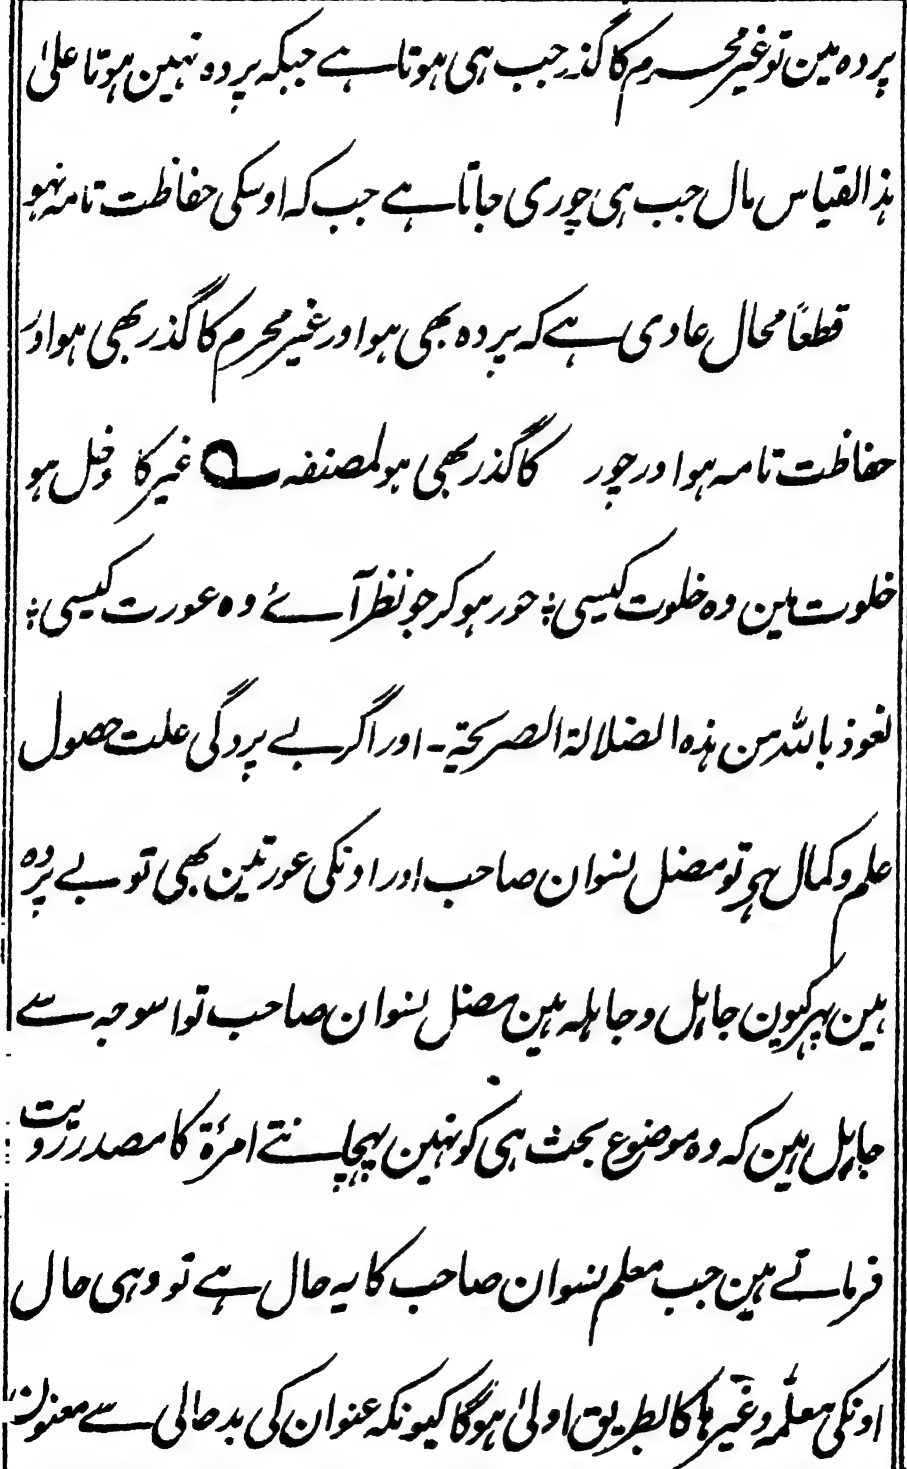 پردہ مین تو غیر محرم کا گذر جب ہی ہوتا ہے جبکہ پردہ نہین ہوتا علیٰ
ہذا القیاس مال جب ہی چوری جاتا ہے جب کہ اوسکی حفاظت تامہ نہو
قطعًا محال عادی ہے کہ پردہ بھی ہو اور غیر محرم کا گذر بھی ہو اور
حفاظت تامہ ہو اور چور کا گذر بھی ہو لمصنفہ ؎ غیر کا دخل ہو
خلوت مین وہ خلوت کیسی ؛ حور ہو کر جو نظر آئے وہ عورت کیسی ؛
نعوذ باللہ من ہذہ الضلالۃ الصریحۃ ۔ اور اگر بے پردگی علت حصول
علم و کمال ہے تو مضل نسوان صاحب اور اونکی عورتین بھی تو بے پردہ
ہین پھر کیون جاہل و جاہلہ ہین مضل نسوان صاحب تو اسوجہ سے
جاہل ہین کہ وہ موضوع بحث ہی کو نہین پہچانتے امرۃ کا مصدر رویت
فرماتے ہین جب معلم نسوان صاحب کا یہ حال ہے تو وہی حال
اونکی معلّمہ وغیرہا کا بطریق اولیٰ ہوگا کیونکہ عنوان کی بدحالی سے معنون